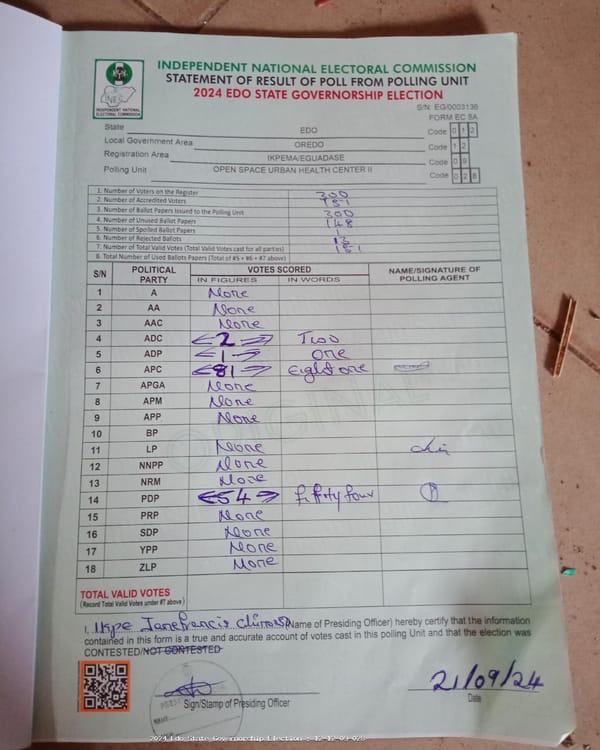 INDEPENDENT NATIONAL ELECTORAL COMMISSION
STATEMENT OF RESULT OF POLL FROM POLLING UNIT
2024 EDO STATE GOVERNORSHIP ELECTION
INDEPENDENT NATIONAL ELECTORAL COMMISSION
S/N: EG/0003136
FORM EC 8A
State EDO Code 0 1 2
Local Government Area OREDO Code 1 2
Registration Area IKPEMA/EGUADASE Code 0 9
Polling Unit OPEN SPACE URBAN HEALTH CENTER II Code 0 2 8
1. Number of Voters on the Register 300
2. Number of Accredited Voters 151
3. Number of Ballot Papers Issued to the Polling Unit 300
4. Number of Unused Ballot Papers 148
5. Number of Spoiled Ballot Papers 1
6. Number of Rejected Ballots 13
7. Number of Total Valid Votes (Total Valid Votes cast for all parties) 151
8. Total Number of Used Ballots Papers (Total of #5 + #6 + #7 above)
S/N POLITICAL PARTY VOTES SCORED NAME/SIGNATURE OF POLLING AGENT
IN FIGURES IN WORDS
1 A None
2 AA None
3 AAC None
4 ADC 2 Two
5 ADP 1 One
6 APC 81 Eight one
7 APGA None
8 APM None
9 APP None
10 BP
11 LP None
12 NNPP None
13 NRM None
14 PDP 54 fifty four
15 PRP None
16 SDP None
17 YPP None
18 ZLP None
TOTAL VALID VOTES
(Record Total Valid Votes under #7 above)
I, Ikpe Janefrancis (Name of Presiding Officer) hereby certify that the information
contained in this form is a true and accurate account of votes cast in this polling Unit and that the election was
CONTESTED/NOT CONTESTED
21/09/24
Sign/Stamp of Presiding Officer Date
2024 Edo State Governorship Election - 12-12-09-028